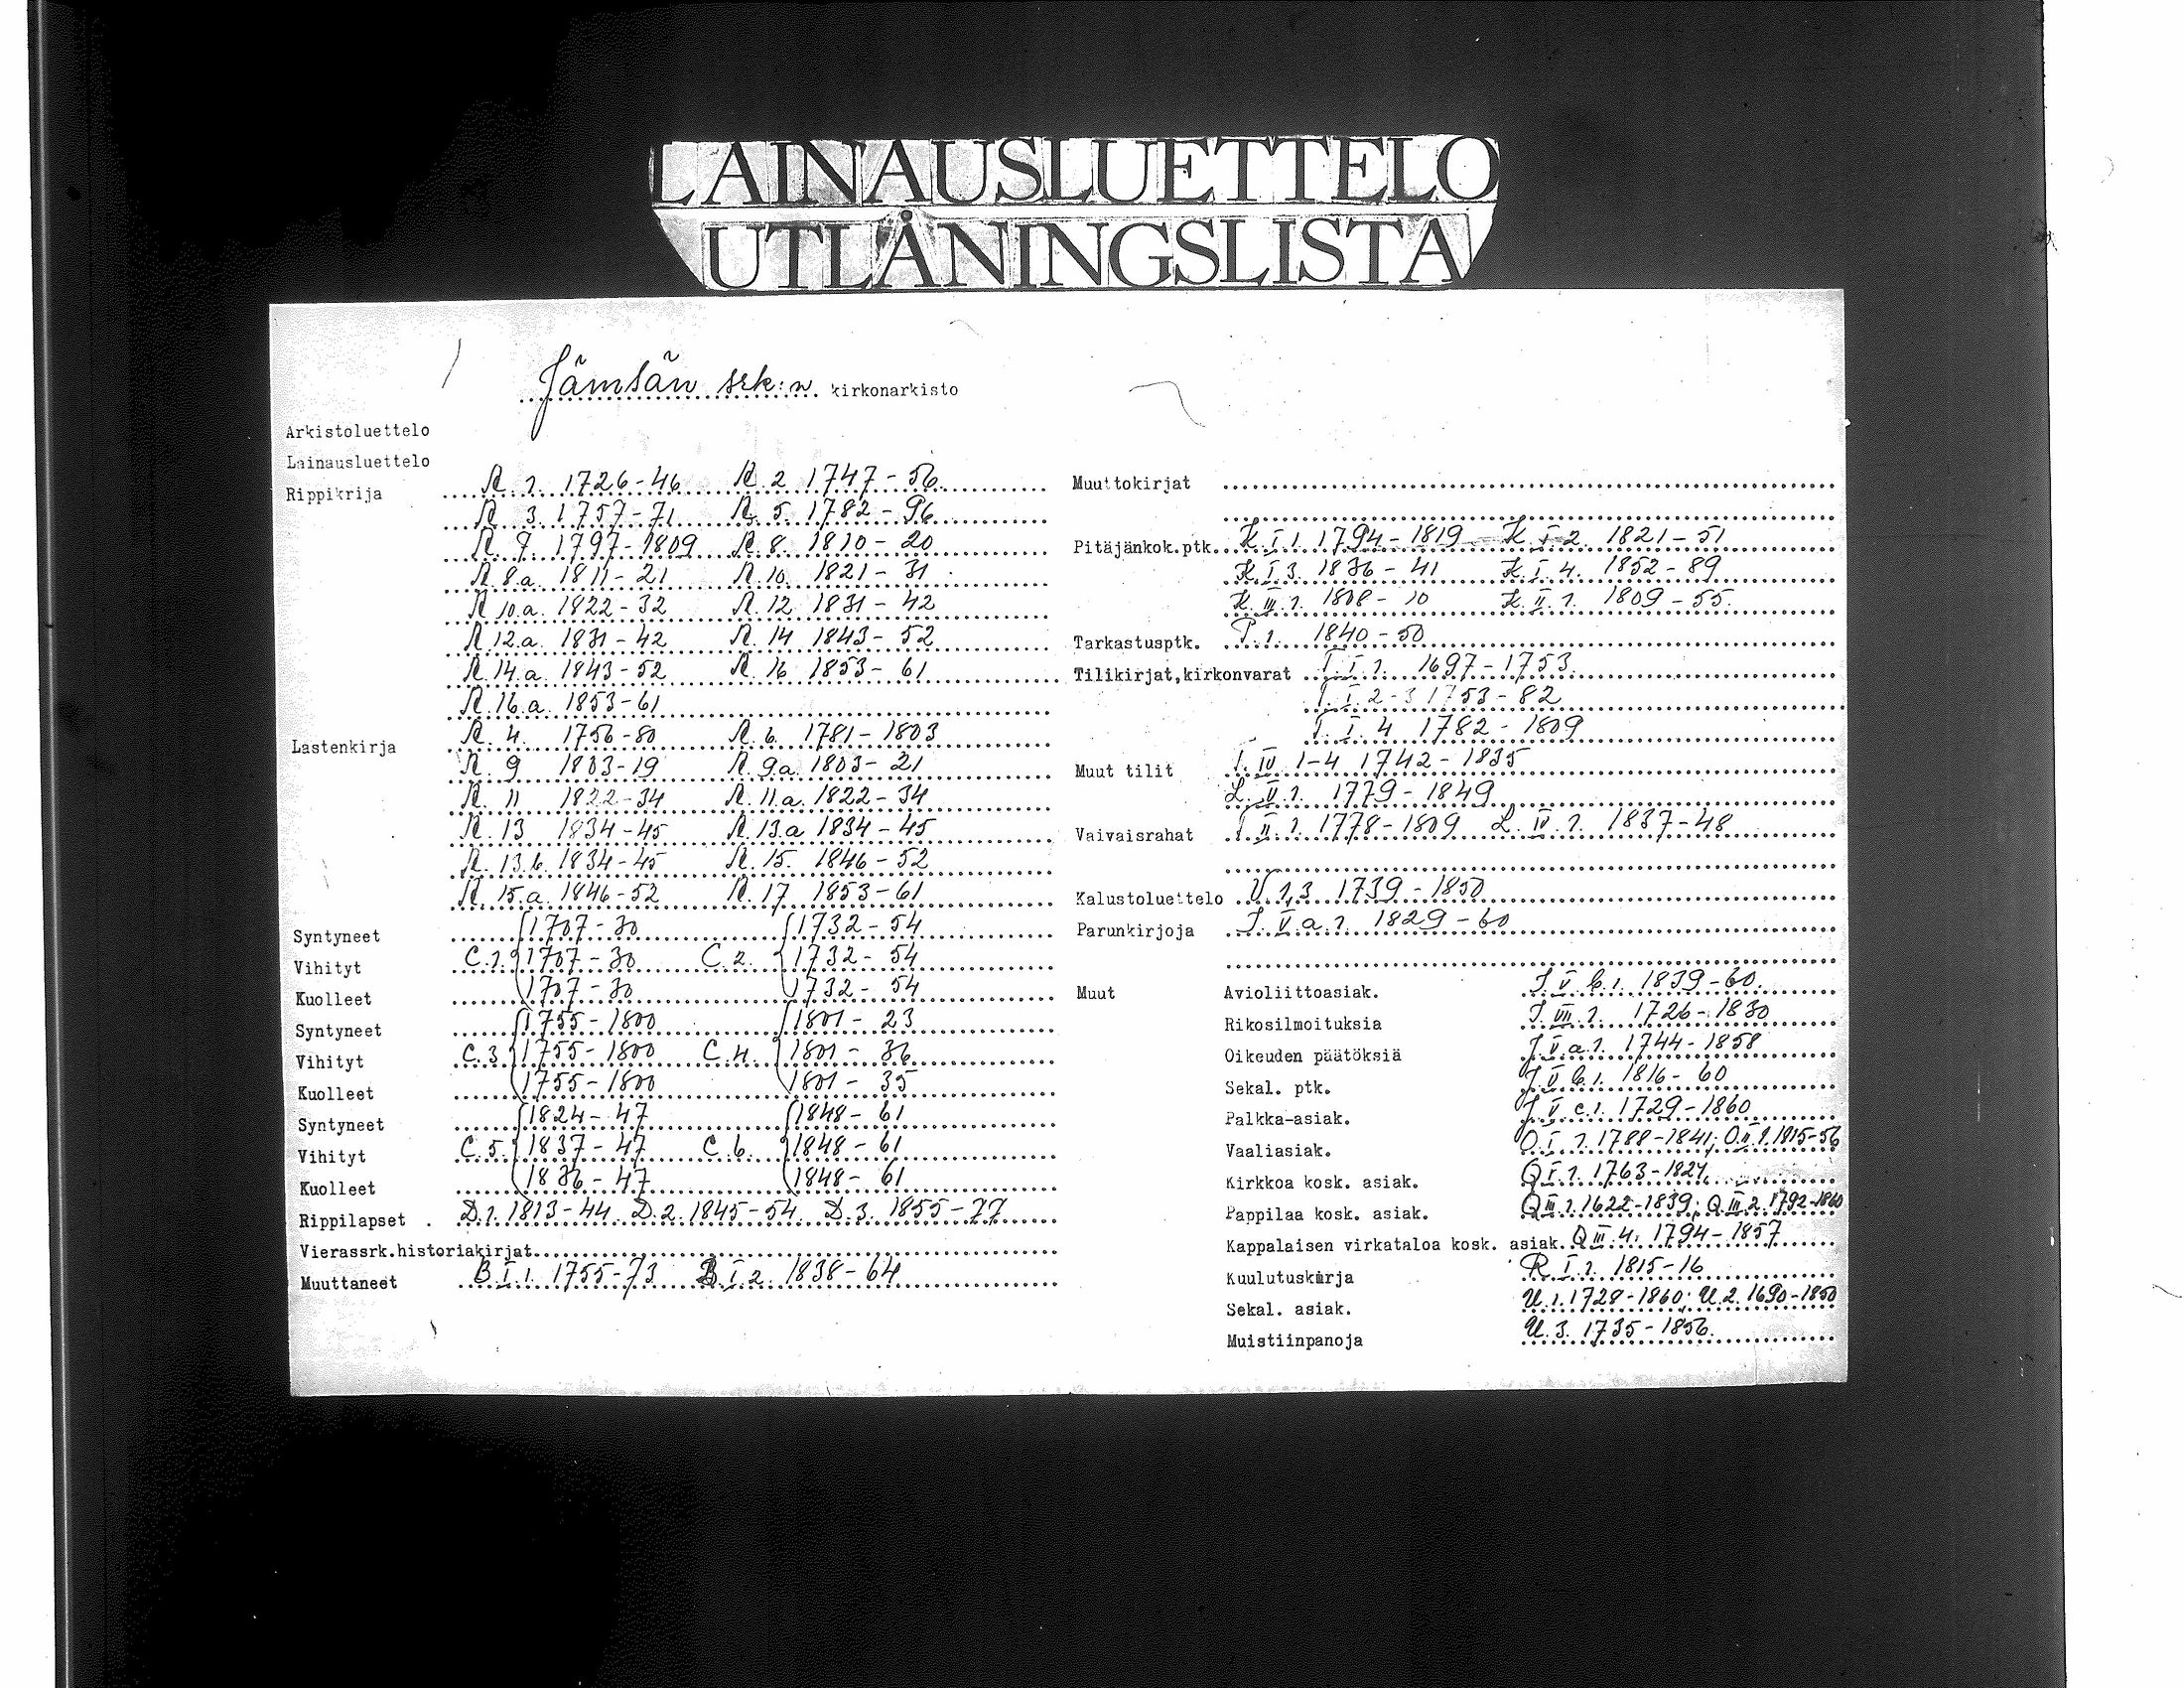 LAINAUSLUETTELO
UTLÅNINGSLISTA
Jämsän srk:n kirkonarkisto
Arkistoluettelo
Lainausluettelo
Rippikrija R. 1. 1726-46 R. 2 1747-56
R. 3. 1757-71 R. 5. 1782-96
R. 7. 1797-1809 R. 8. 1810-20
R. 8.a. 1811-21 R. 10. 1821-31
R. 10.a. 1822-32 R. 12. 1831-42
R. 12.a. 1831-42 R. 14 1843-52
R. 14.a. 1843-52 R. 16 1853-61
R. 16.a. 1853-61
Lastenkirja R. 4. 1756-80 R. 6. 1781-1803
R. 9 1803-19 R. 9.a. 1803-21
R. 11 1822-34 R. 11.a. 1822-34
R. 13 1834-45 R. 13.a 1834-45
R. 13.b. 1834-45 R. 15. 1846-52
R. 15.a. 1846-52 R. 17 1853-61
Syntyneet 1707-30 1732-54
Vihityt C.1. 1707-30 C.2. 1732-54
Kuolleet 1707-30 1732-54
Syntyneet 1755-1800 1801-23
Vihityt C.3. 1755-1800 C.4. 1801-36
Kuolleet 1755-1800 1801-35
Syntyneet 1824-47 1848-61
Vihityt C.5. 1837-47 C.6. 1848-61
Kuolleet 1836-47 1848-61
Rippilapset . D.1. 1813-44 D.2. 1845-54 D.3. 1855-77
Vierassrk.historiakirjat
Muuttaneet B.I.1. 1755-73 B.I.2. 1838-64
Muuttokirjat
Pitäjänkok.ptk. K.I.1. 1794-1819 K.I.2. 1821-51
K.I.3. 1836-41 K.I.4. 1852-89
K.III.1. 1808-10 K.II.1. 1809-55.
Tarkastusptk. P.1. 1840-50
Tilikirjat,kirkonvarat T.I.1. 1697-1753.
T.I.2-3 1753-82
T.I.4 1782-1809
Muut tilit T.IV 1-4 1742-1835
L.V.1. 1779-1849
Vaivaisrahat T.II.1. 1778-1809 L.IV.1. 1837-48
Kalustoluettelo V.1,3. 1739-1850
Parunkirjoja J.V.a.1. 1829-60
Muut Avioliittoasiak. J.V.b.1. 1839-60.
Rikosilmoituksia J.VII.1. 1726-1830
Oikeuden päätöksiä J.V.a.1. 1744-1858
Sekal. ptk. J.V.b.1. 1816-60
Palkka-asiak. J.V.c.1. 1729-1860
Vaaliasiak. O.I.1. 1788-1841; O.II.1. 1815-56
Kirkkoa kosk. asiak. Q.I.1. 1763-1824.
Pappilaa kosk. asiak. Q.III.1. 1622-1839; Q.III.2. 1792-1860
Kappalaisen virkataloa kosk. asiak. Q.III.4. 1794-1857
Kuulutuskirja R.I.1. 1815-16
Sekal. asiak. U.1. 1728-1860; U.2. 1690-1850
Muistiinpanoja U.3. 1735-1856.